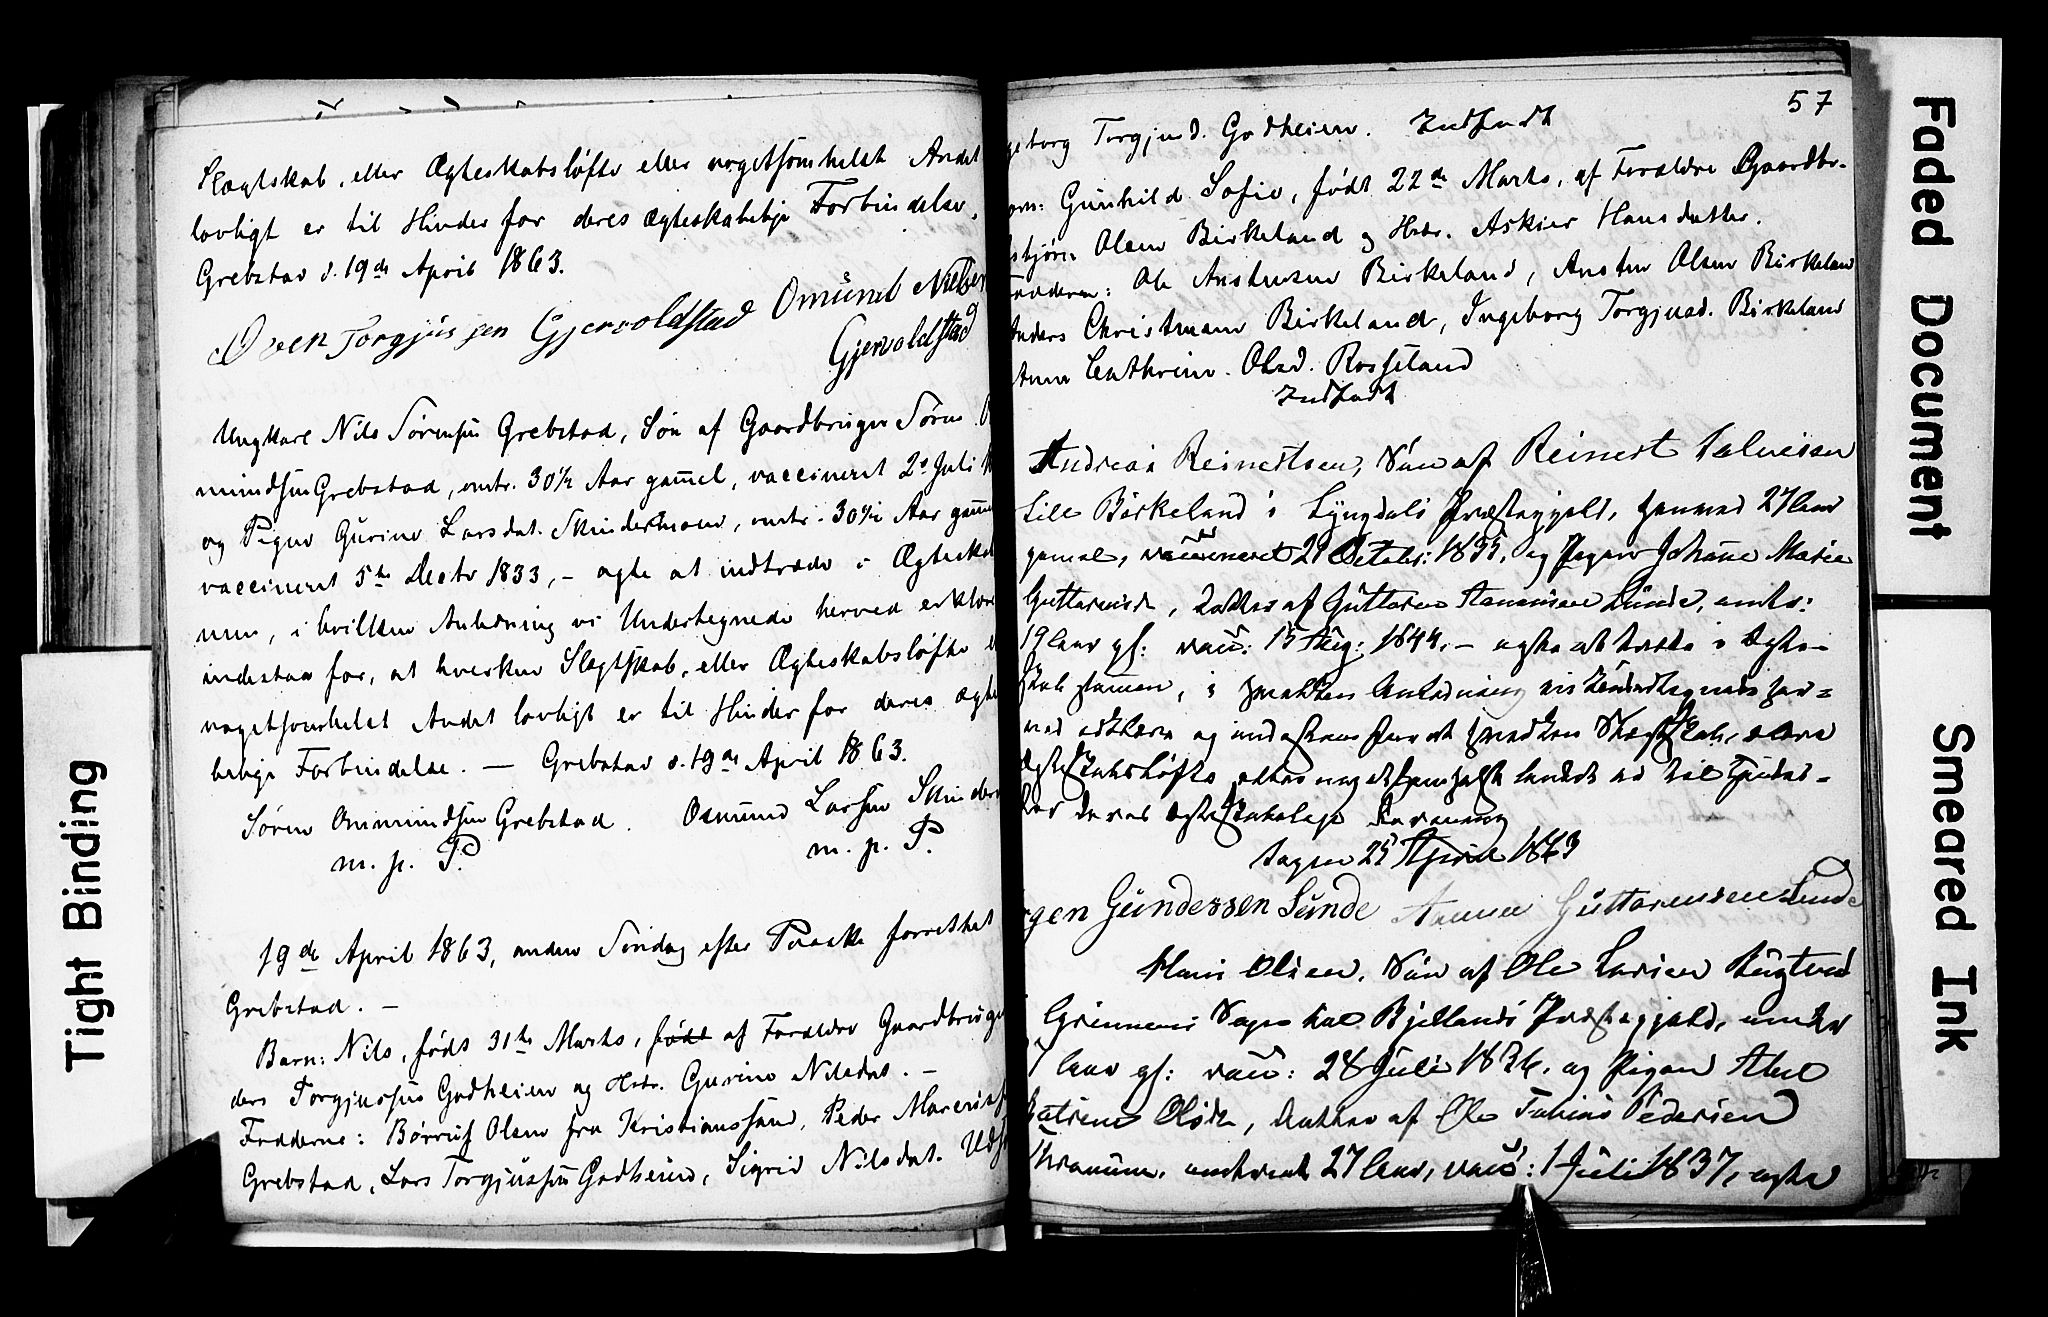 Slægtskab, eller Ægteskabsløfte eller nogetsomhelst Andet
lovligt er til Hinder for deres ægteskabelige Forbindelse.
Grebstad d. 19de April 1863.
Oven Torgjussen Gjervoldstad Omund Nielsen
Gjervoldstad
Ungkarl Nils Sørensen Grebstad, Søn af Gaardbruger Søren
mundsen Grebstad, omtr. 30½ Aar gammel, vaccineret 2de Juli
og Pigen Gurine Larsdat. Skindermoen, omtr. 30½ Aar gamme
vaccineret 5te Decbr 1833, – agte at indtræde i Ægteska
men, i hvilken Anledning vi Undertegnede herved erklære
indestaa for, at hverken Slægtskab, eller Ægteskabsløfte
nogetsomhelst Andet lovligt er til Hinder for deres ægte
belige Forbindelse. — Grebstad d. 19de April 1863.
Søren Ommundsen Grebstad. Osmund Larsen Skinder
m. p. P. m. p. P.
19de April 1863, anden Søndag efter Paaske forrettet
Grebstad. –
Barn: Nils, født 31te Marts, født af Forældre Gaardbruger
ders Torgjussen Godheien og Hstr. Gurine Nilsdat. –
Fadderne: Børruf Olsen fra Kristianssand, Peder
Grebstad, Lars Torgjussen Godheien, Sigrid Nilsdat. Udf
57
geborg Torgjusd. Godheien. Indført
arn: Gunhild Sofie, født 22de Marts, af Forældre Gaardbr.
stjørn Olsen Birkeland og Hstr. Hansdatter.
Fadderne: Ole Anstensen Birkeland, Ansten Olsen Birkeland
Anders Christensen Birkeland, Ingeborg Torgjusd. Birkeland
Anne Cathrine Olsd. Rosseland
Indført
Andreas Reinertsen, Søn af Reinert Salvesen
Lille Birkeland i Lyngdals Præstegjeld, henved 27 Aar
gamel, vaccineret 21 October 1835, og Pigen Johanne Marie
Guttormsd., Datter af Guttorm Sunde, omtr:
19 Aar gl: vacc: 15 Aug: 1844. – agte at træde i Ægte-
skab sammen, i hvilken Anledning vi Undertegnede her=
ved erklære og indestaae for at hverken Slægtskab, eller
Ægteskabsløfte eller noget somhelst Andet er til Hinder=
for deres Ægteskabelige Forening
25 April 1863
rgen Gundersen Sunde Guttormsen Sunde
Hans Olsen, Søn af Ole Larsen
Grinnems Sogn Bjellands Præstegjeld, omtr
7 Aar gl: vacc: 28 Juli 1836, og Pigen Abel
Katrine Olsdr, Datter af Ole Tobias Pedersen
omtrent 27 Aar, vacc: 1 Juli 1837, agte
Tight Binding
Faded Document
Smeared Ink